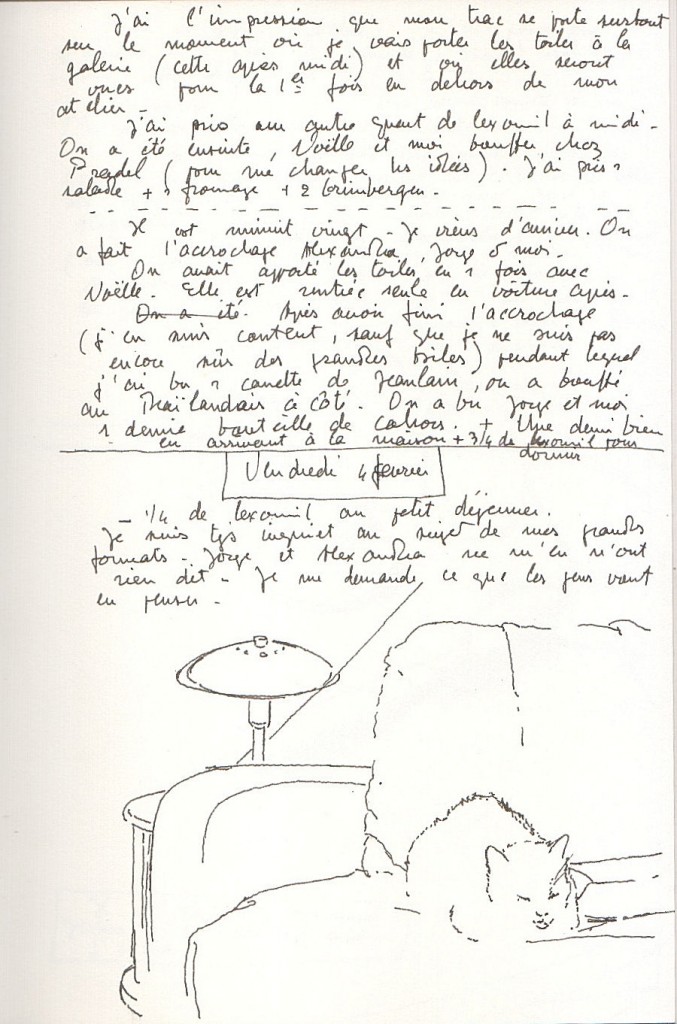 J'ai l'impression que mon trac se porte surtout
sur le moment où je vais porter les toiles à la
galerie (cette après midi) et où elles seront
vues pour la 1ère fois en dehors de mon
atelier -
J'ai pris un autre quart de lexomil à midi -
On a été ensuite, Noëlle et moi bouffer chez
Pradel (pour me changer les idées). J'ai pris 1
salade + 1 fromage + 2 Grimbergen.
Il est minuit vingt - Je viens d'arriver. On
a fait l'accrochage Alexandra, Jorge & moi -
On avait apporté les toiles en 1 fois avec
Noëlle. Elle est rentrée seule en voiture après -
On a été. Après avoir fini l'accrochage
(j'en suis content, sauf que je ne suis pas
encore sûr des grandes toiles) pendant lequel
j'ai bu 1 canette de Jeanlain, on a bouffé
au Thaïlandais à côté. On a bu Jorge et moi
1 demie bouteille de Cahors. + Une demi bien
en arrivant à la maison + 3/4 de lexomil pour
dormir
Vendredi 4 février
- 1/4 de lexomil au petit déjeuner.
Je suis tjs inquiet au sujet de mes grands
formats - Jorge et Alexandra ne m'en n'ont
rien dit - Je me demande ce que les gens vont
en penser -